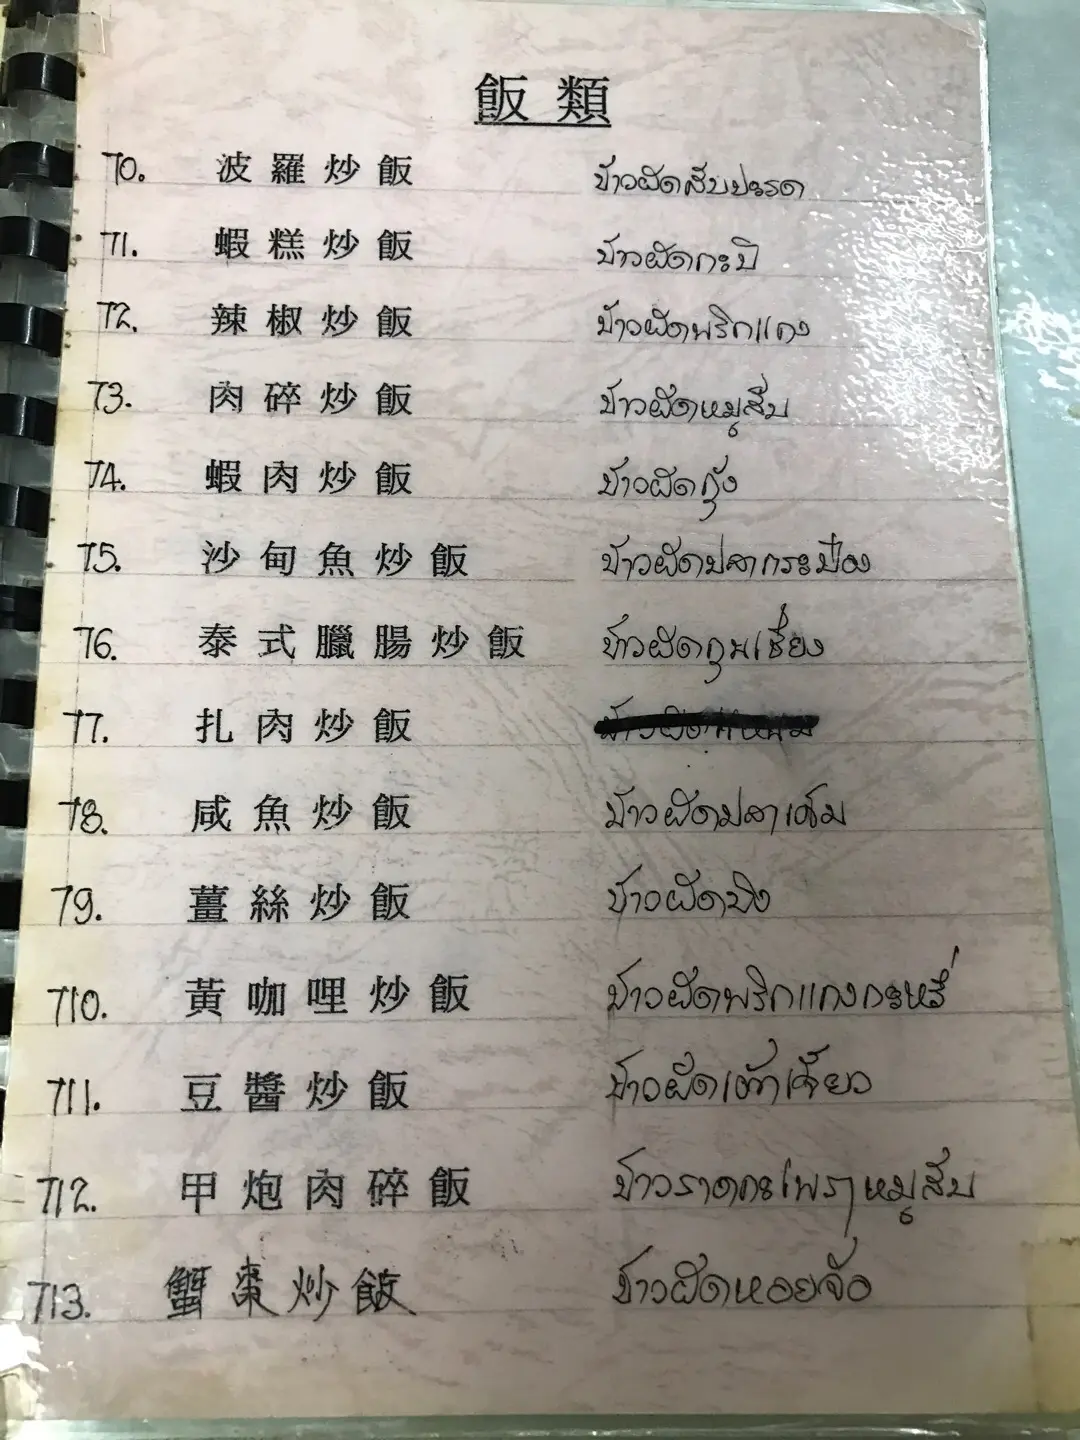 飯類
70. 波羅炒飯 ข้าวผัดสับปะรด
71. 蝦糕炒飯 ข้าวผัดกะปิ
72. 辣椒炒飯 ข้าวผัดพริกแกง
73. 肉碎炒飯 ข้าวผัดหมูสับ
74. 蝦肉炒飯 ข้าวผัดกุ้ง
75. 沙甸魚炒飯 ข้าวผัดปลากระป๋อง
76. 泰式臘腸炒飯 ข้าวผัดกุนเชียง
77. 扎肉炒飯
78. 咸魚炒飯 ข้าวผัดปลาเค็ม
79. 薑絲炒飯 ข้าวผัดขิง
710. 黃咖哩炒飯 ข้าวผัดพริกแกงกะหรี่
711. 豆醬炒飯 ข้าวผัดเต้าเจี้ยว
712. 甲炮肉碎飯 ข้าวราดกะเพราหมูสับ
713. 蟹棗炒飯 ข้าวผัดหอยจ้อ